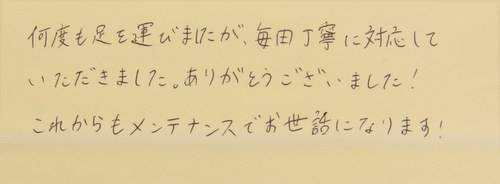 何度も足を運びましたが、毎回丁寧に対応して
いただきました。ありがとうございました！
これからもメンテナンスでお世話になります！